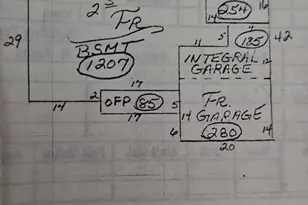 254
16
14
2 S
FR
5
7
185
42
29
BSMT
1207
11
INTEGRAL
GARAGE
12
17
2
OFP 85
5
FR.
14
14 GARAGE
17
6
280
14
20